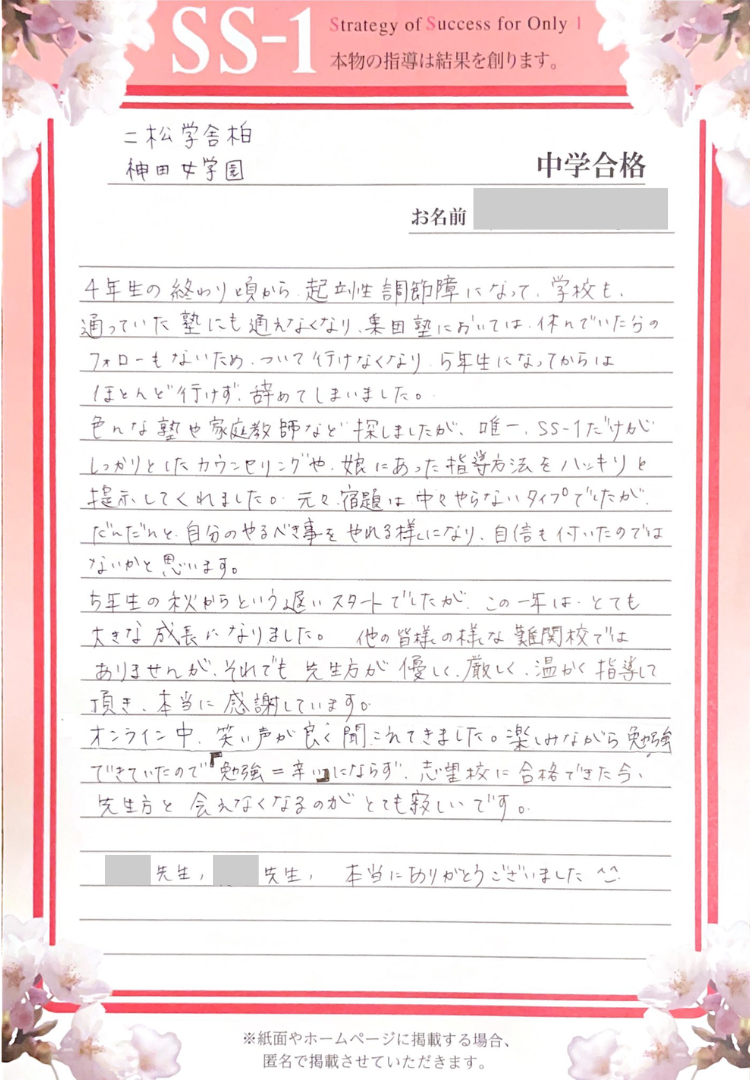 SS-1
Strategy of Success for Only 1
本物の指導は結果を創ります。
二松学舎柏
神田女学園
中学合格
お名前
4年生の終わり頃から、起立性調節障になって、学校も、
通っていた塾にも通えなくなり、集団塾においては、休んでいた分の
フォローもないため、ついて行けなくなり、5年生になってからは
ほとんど行けず、辞めてしまいました。
色んな塾や家庭教師など探しましたが、唯一、SS-1だけが
しっかりとしたカウンセリングや、娘にあった指導方法をハッキリと
提示してくれました。元々、宿題は中々やらないタイプでしたが、
だんだんと、自分のやるべき事をやれる様になり、自信も付いたのでは
ないかと思います。
5年生の秋からという遅いスタートでしたが、この一年は、とても
大きな成長になりました。 他の皆様の様な難関校では
ありませんが、それでも先生方が優しく、厳しく、温かく指導して
頂き、本当に感謝しています。
オンライン中、笑い声が良く聞こえてきました。楽しみながら勉強
できていたので「勉強=辛い」にならず、志望校に合格できた今、
先生方と会えなくなるのがとても寂しいです。
先生、 先生、 本当にありがとうございました ^^
※紙面やホームページに掲載する場合、
匿名で掲載させていただきます。